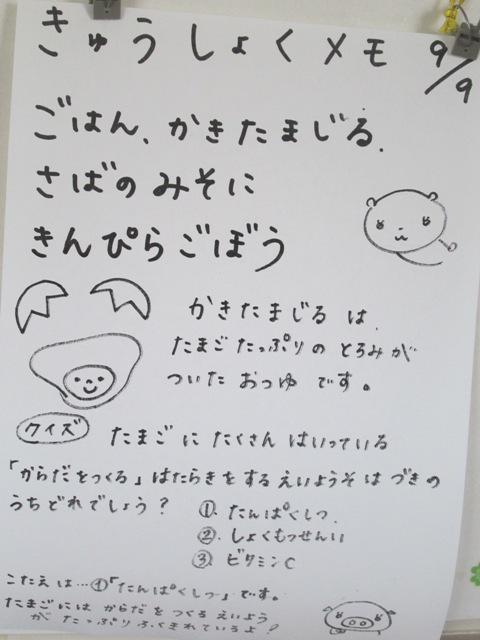 きゅうしょくメモ 9/9
ごはん、かきたまじる、
さばのみそに
きんぴらごぼう
かきたまじるは、
たまごたっぷりのとろみが
ついたおつゆです。
クイズ たまごにたくさんはいっている
「からだをつくる」はたらきをするえいようそはつぎの
うちどれでしょう?
① たんぱくしつ
② しょくもつせんい
③ ビタミンC
こたえは…①「たんぱくしつ」です。
たまごにはからだをつくるえいよう
がたっぷりふくまれているよ?